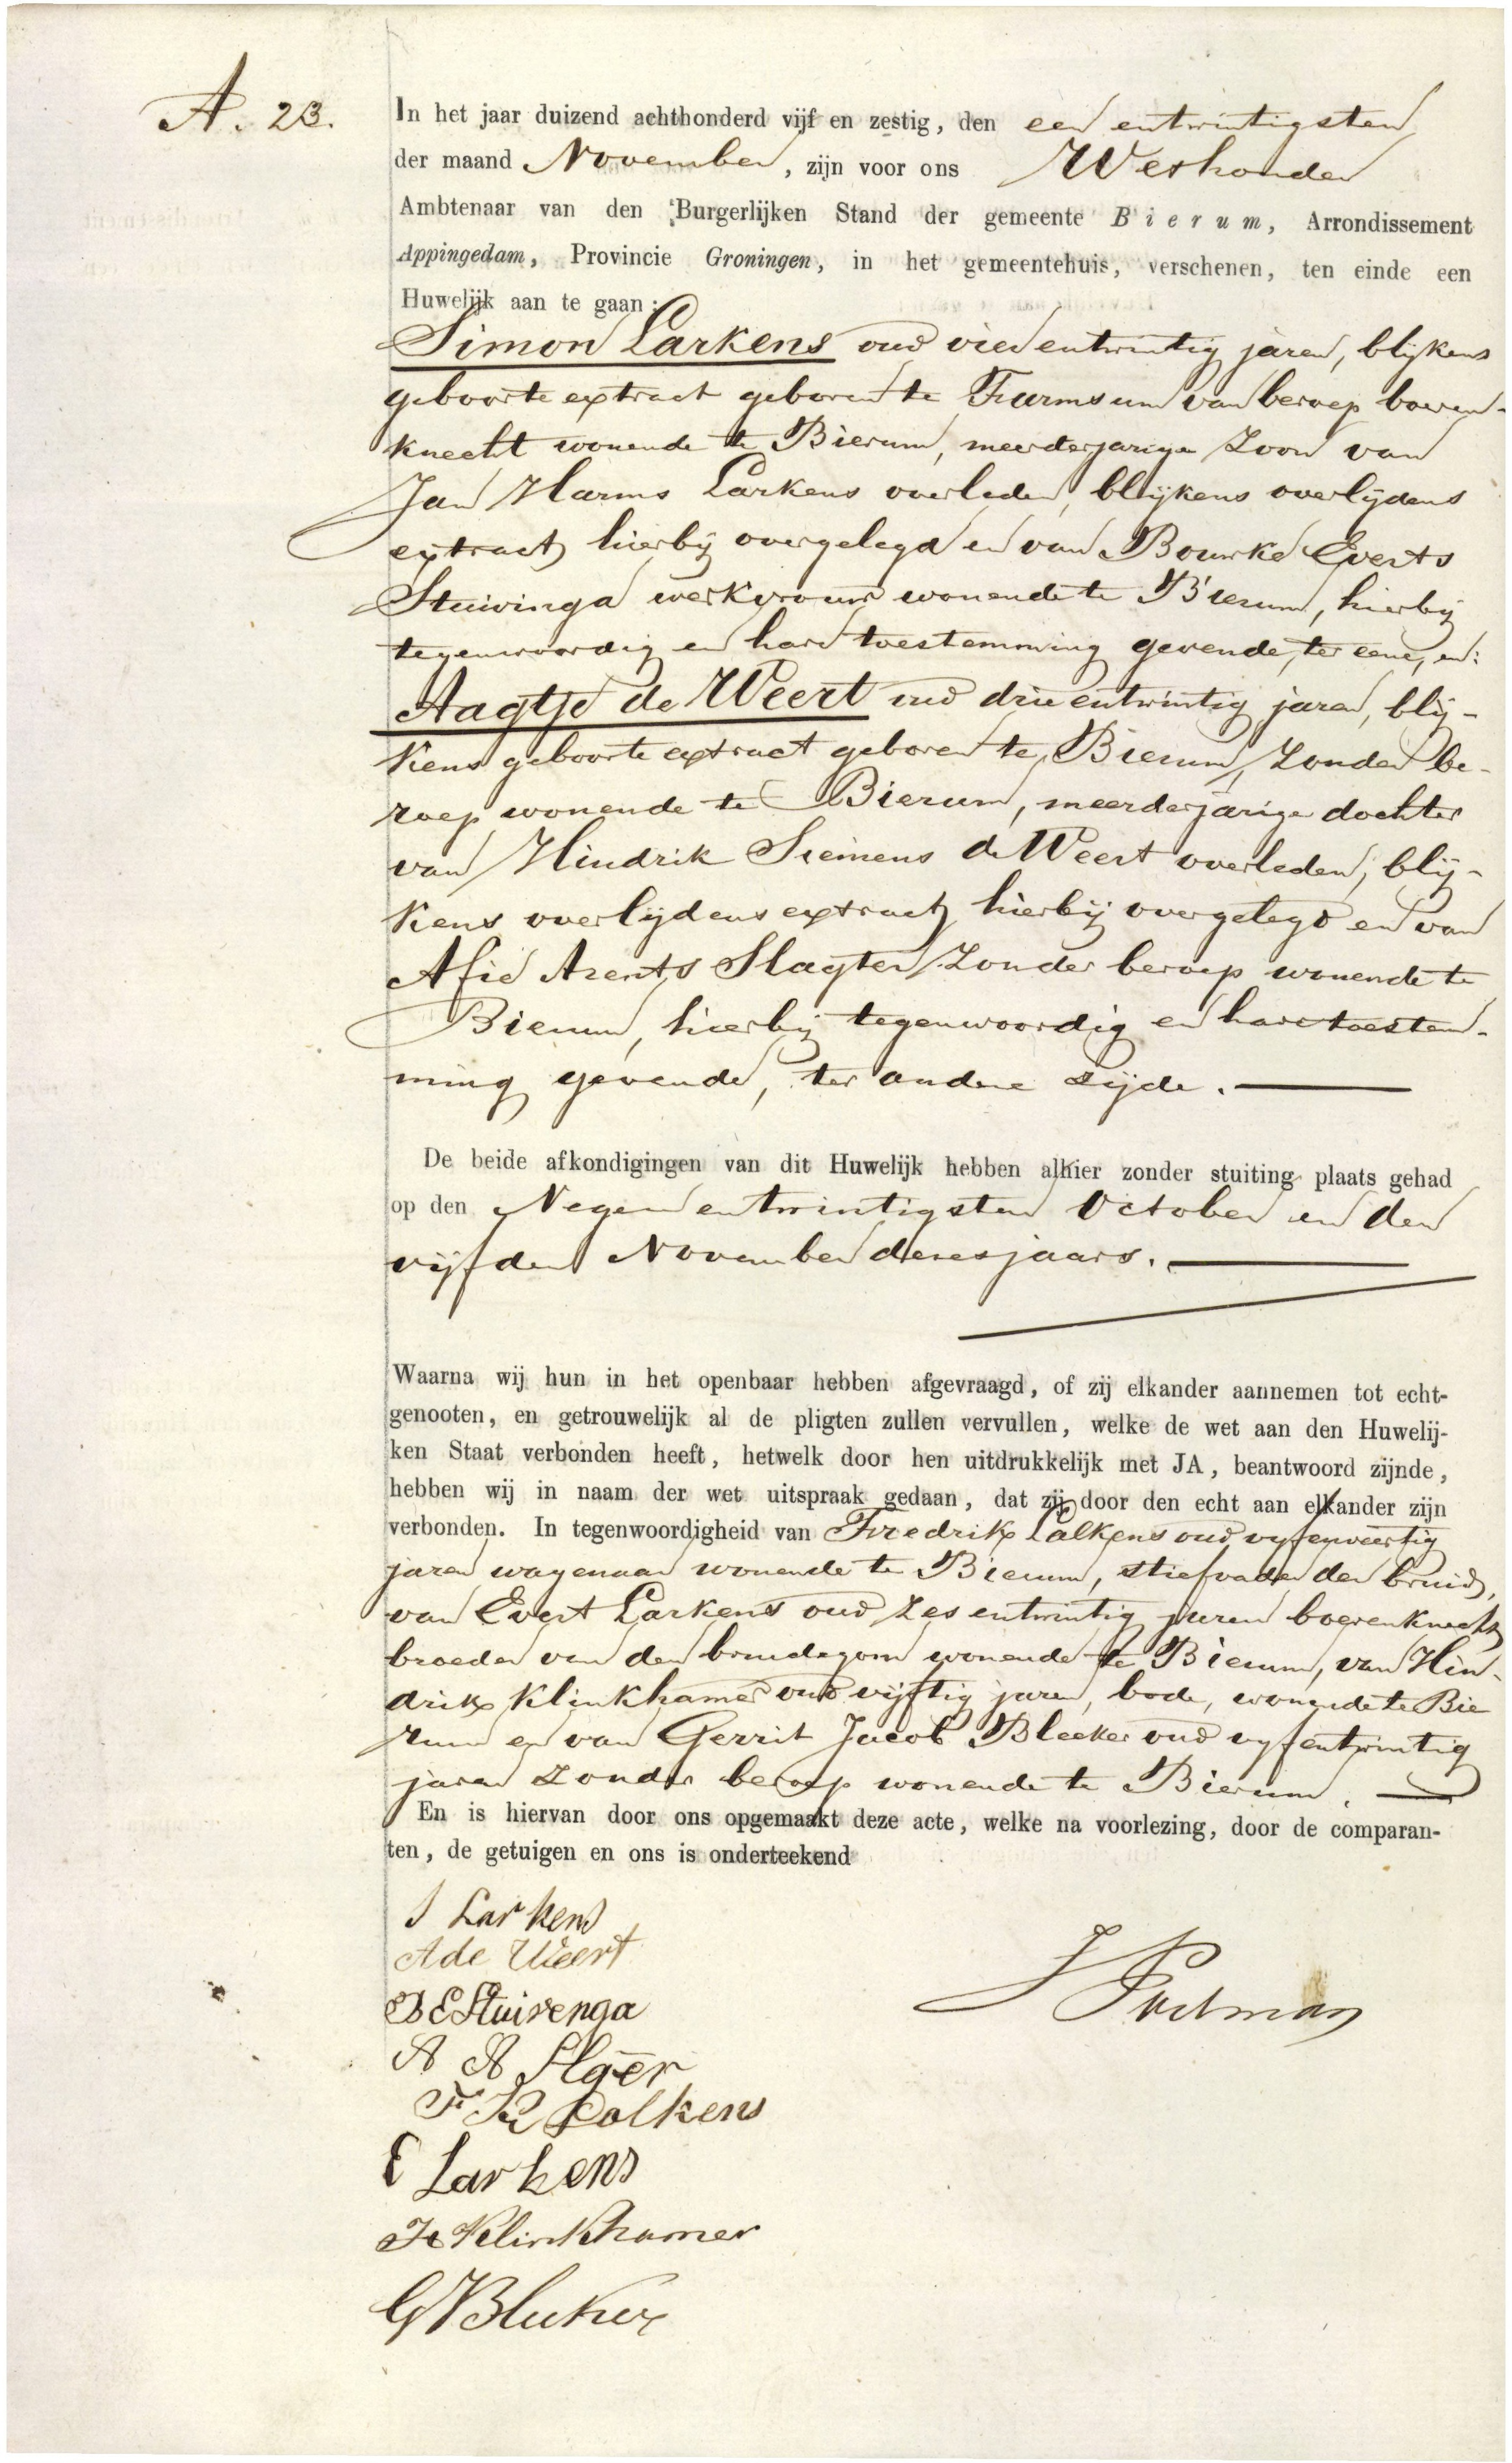 A. 23.
In het jaar duizend achthonderd vijf en zestig, den een entwintigsten
der maand November, zijn voor ons Wethouder
Ambtenaar van den Burgerlijken Stand der gemeente Bierum, Arrondissement
Appingedam, Provincie Groningen, in het gemeentehuis, verschenen, ten einde een
Huwelijk aan te gaan:
Simon Larkens oud vier entwintig jaren, blijkens
geboorte extract geboren te Farmsum van beroep boeren-
knecht wonende te Bierum, meerderjarige zoon van
Jan Harms Larkens overleden, blijkens overlijdens
extract hierbij overgelegd en van Bouwke Everts
Stuivinga werkvrouw wonende te Bierum, hierbij
tegenwoordig en hare toestemming gevende, ter eene, en:
Aagtje de Weert oud drie entwintig jaren, blij-
kens geboorte extract geboren te Bierum, zonder be-
roep wonende te Bierum, meerderjarige dochter
van Hindrik Siemens de Weert overleden, blij-
kens overlijdens extract hierbij overgelegd en van
Afie Arents Slagter zonder beroep wonende te
Bierum, hierbij tegenwoordig en hare toestem-
ming gevende, ter andere zijde.
De beide afkondigingen van dit Huwelijk hebben alhier zonder stuiting plaats gehad
op den Negen entwintigsten October en den
vijfden November dezes jaars.
Waarna wij hun in het openbaar hebben afgevraagd, of zij elkander aannemen tot echt-
genooten, en getrouwelijk al de pligten zullen vervullen, welke de wet aan den Huwelij-
ken Staat verbonden heeft, hetwelk door hen uitdrukkelijk met JA, beantwoord zijnde,
hebben wij in naam der wet uitspraak gedaan, dat zij door den echt aan elkander zijn
verbonden. In tegenwoordigheid van Fredrik Palkens oud vijfenveertig
jaren wagenaar wonende te Bierum, stiefvader der bruid,
van Evert Larkens oud zes entwintig jaren boerenknecht
broeder van den bruidegom wonende te Bierum, van Hin-
drik Klinkhamer oud vijftig jaren, bode, wonende te Bie
rum en van Gerrit Jacob Bleeker oud vijfentwintig
jaren zonder beroep wonende te Bierum.
En is hiervan door ons opgemaakt deze acte, welke na voorlezing, door de comparan-
ten, de getuigen en ons is onderteekend
S Larkens
A de Weert
B E Stuivenga
A A Slager
F K Palkens
E Larkens
H Klinkhamer
GJBleeker